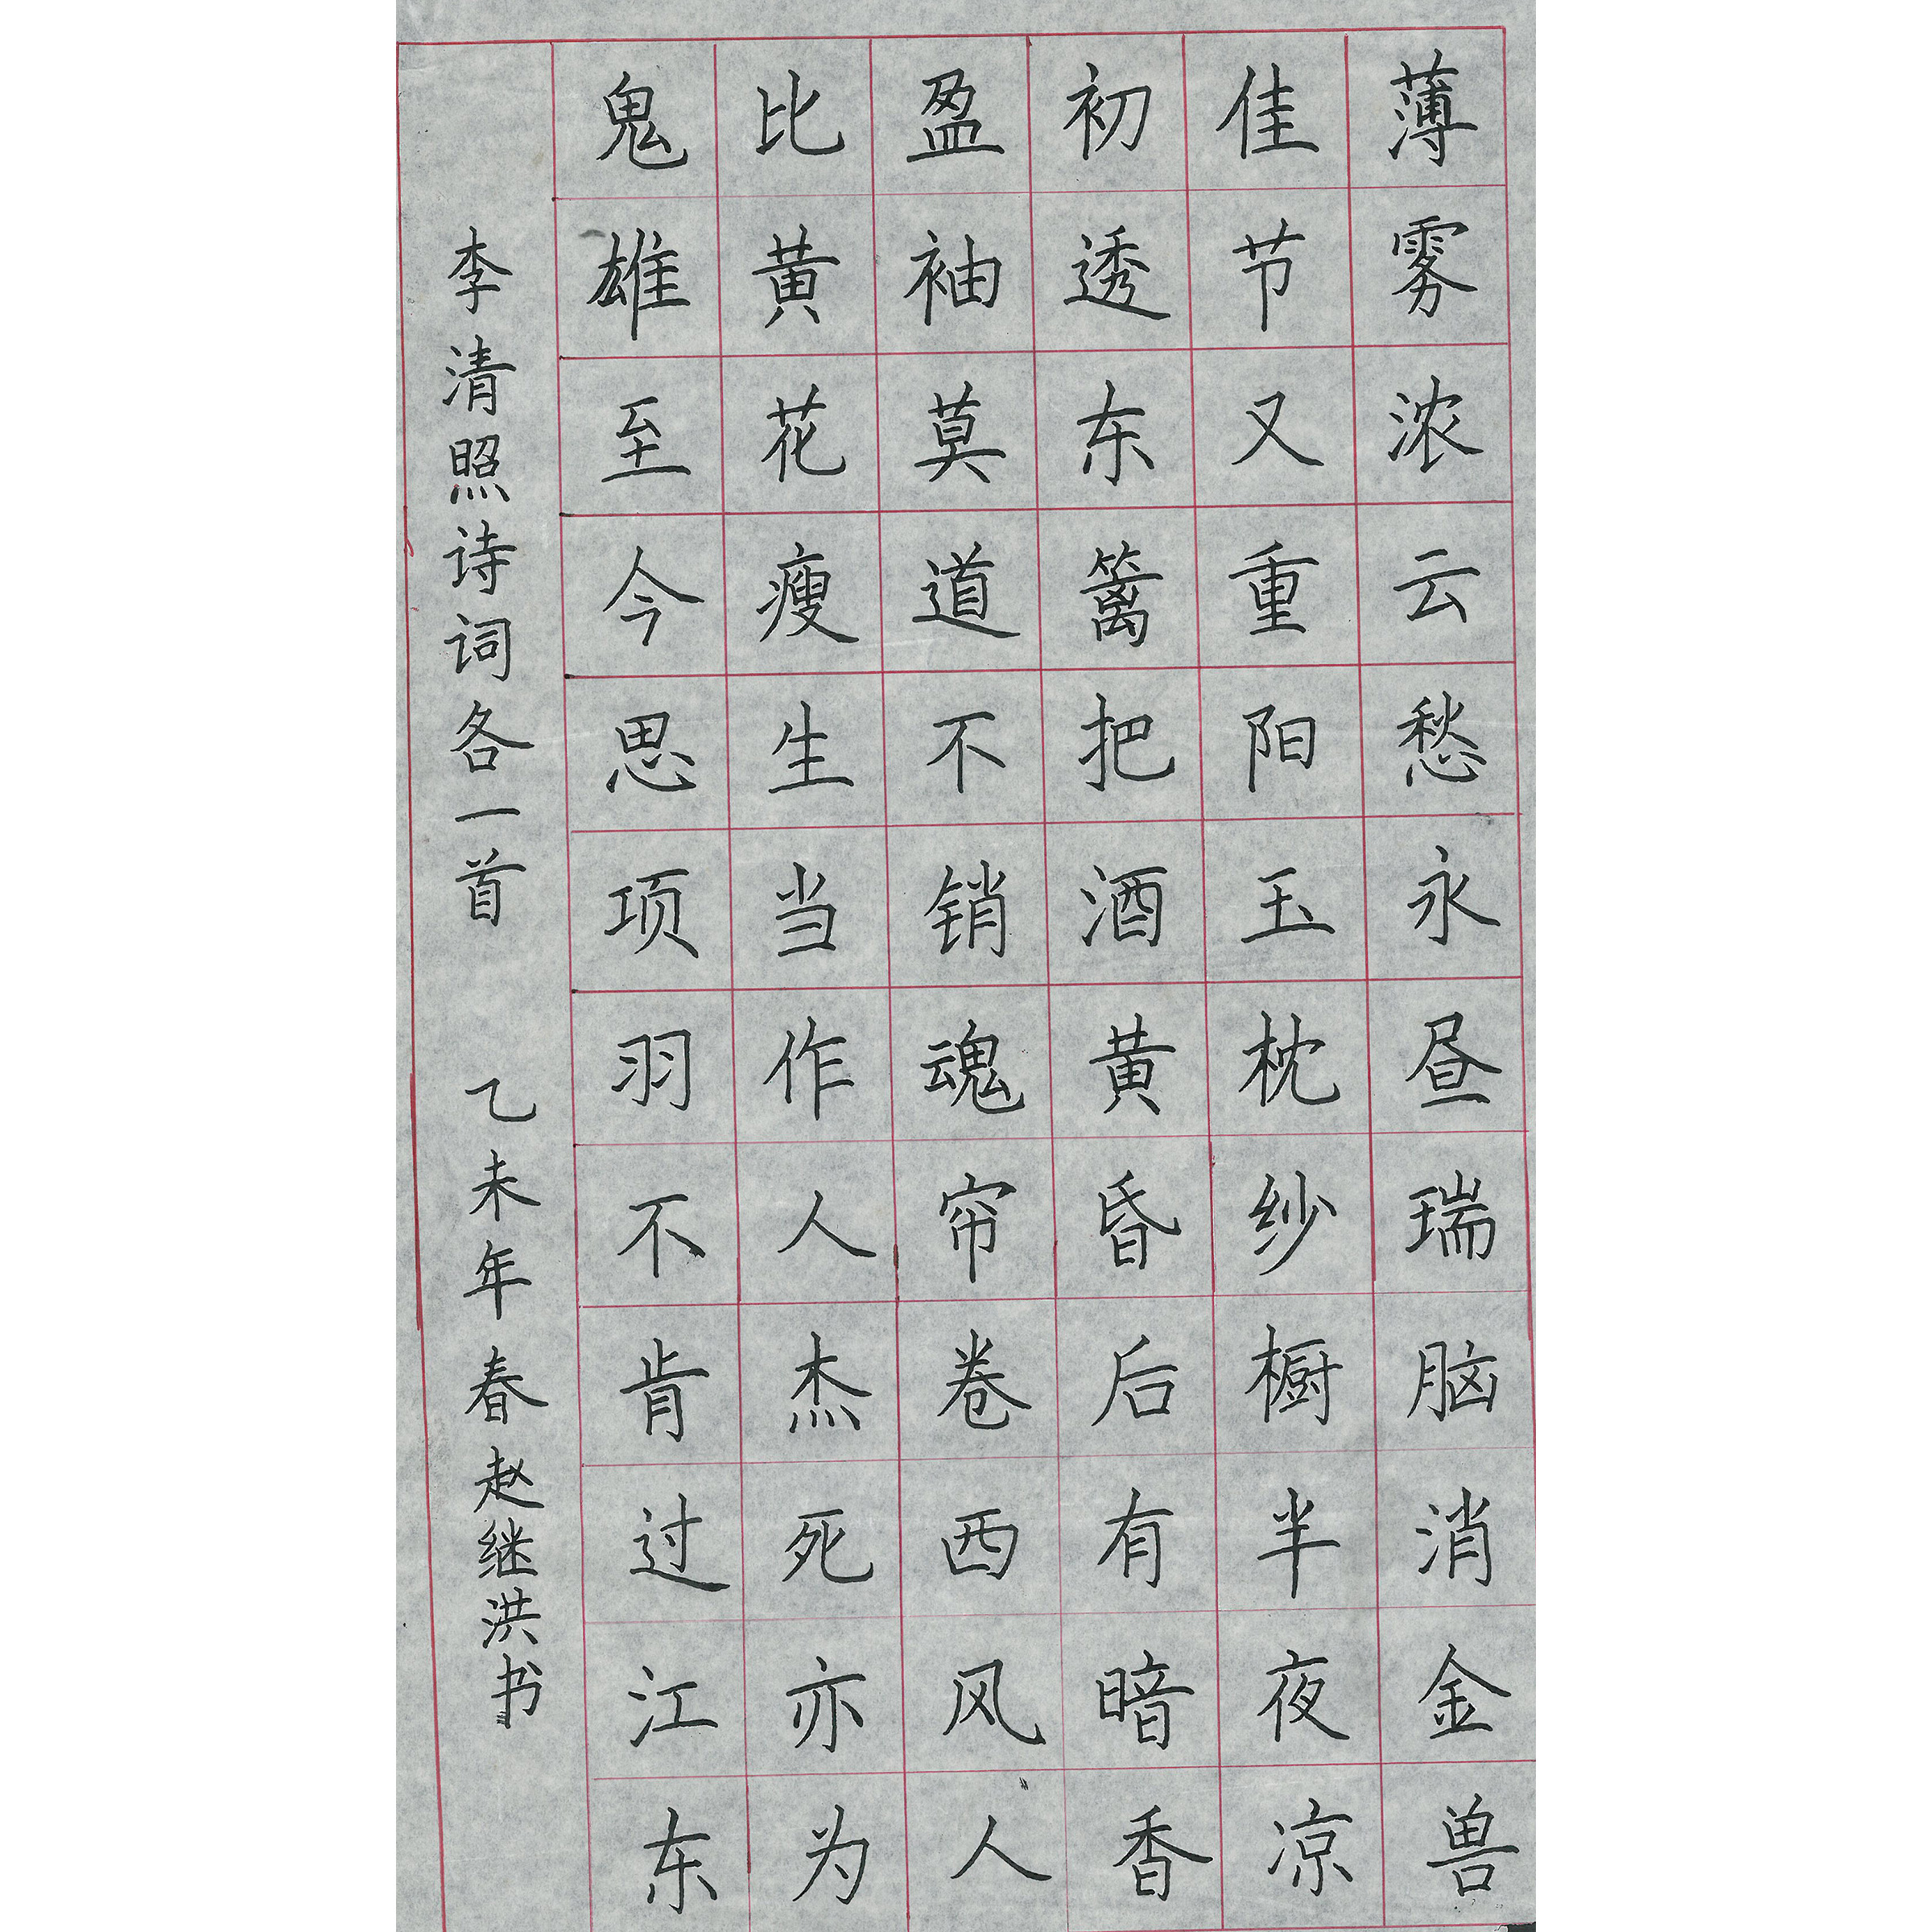 薄雾浓云愁永昼瑞脑消金兽
佳节又重阳玉枕纱橱半夜凉
初透东篱把酒黄昏后有暗香
盈袖莫道不销魂帘卷西风人
比黄花瘦生当作人杰死亦为
鬼雄至今思项羽不肯过江东
李清照诗词各一首 乙未年春赵继洪书